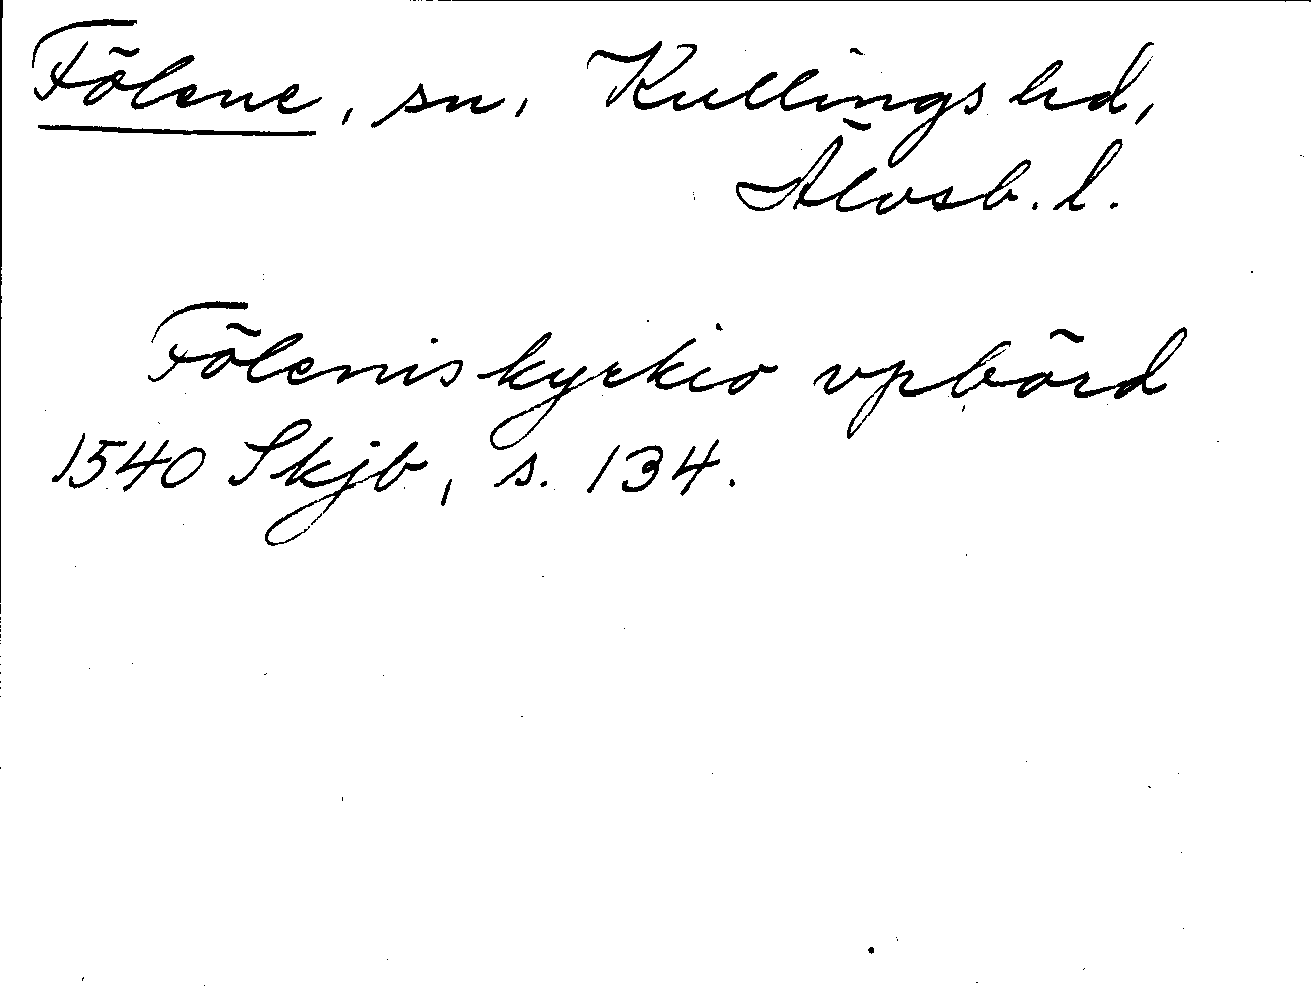 Fölene, sn, Kullings hd,
Älvsb. l.
Föleniskyrkio vpbörd
1540 Skjb, s. 134.